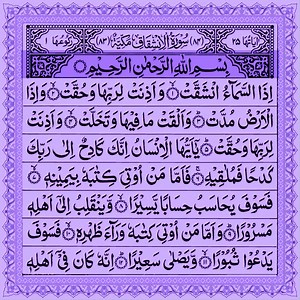 اٰیَاتُهَا ٢٥ (٨٤) سُوْرَةُ الْاِنْشِقَاقِ مَكِّیَّةٌ (٨٣) رُكُوْعُهَا ١
بِسْمِ اللّٰهِ الرَّحْمٰنِ الرَّحِیْمِ
اِذَا السَّمَآءُ انْشَقَّتْ ۝١ وَاَذِنَتْ لِرَبِّهَا وَحُقَّتْ ۝٢ وَاِذَا
الْاَرْضُ مُدَّتْ ۝٣ وَاَلْقَتْ مَا فِیْهَا وَتَخَلَّتْ ۝٤ وَاَذِنَتْ
لِرَبِّهَا وَحُقَّتْ ۝٥ یٰۤاَیُّهَا الْاِنْسَانُ اِنَّكَ كَادِحٌ اِلٰى رَبِّكَ
كَدْحًا فَمُلٰقِیْهِ ۝٦ فَاَمَّا مَنْ اُوْتِیَ كِتٰبَهٗ بِیَمِیْنِهٖ ۝٧
فَسَوْفَ یُحَاسَبُ حِسَابًا یَّسِیْرًا ۝٨ وَّیَنْقَلِبُ اِلٰۤى اَهْلِهٖ
مَسْرُوْرًا ۝٩ وَاَمَّا مَنْ اُوْتِیَ كِتٰبَهٗ وَرَآءَ ظَهْرِهٖ ۝١٠ فَسَوْفَ
یَدْعُوْا ثُبُوْرًا ۝١١ وَّیَصْلٰى سَعِیْرًا ۝١٢ اِنَّهٗ كَانَ فِیْۤ اَهْلِهٖ